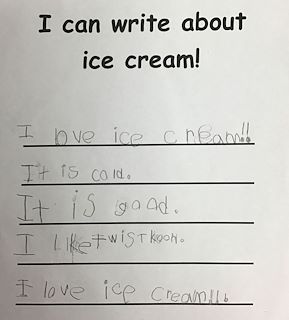 I can write about
ice cream!
I love ice cream!!
It is cold.
It is good.
I like twist koon.
I love ice cream!!!